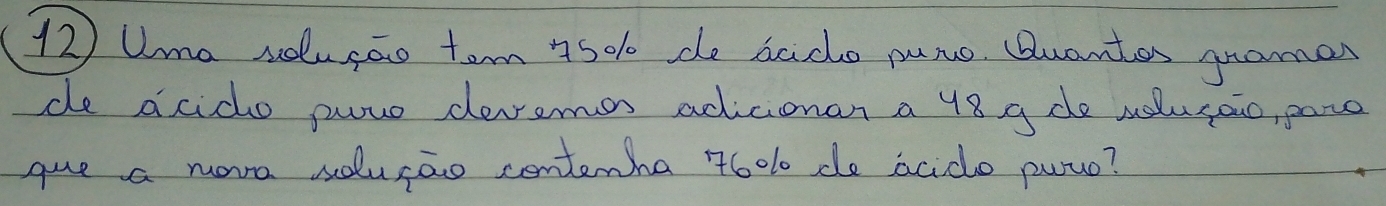 12) Uma solução tem 75% de ácido puro. Quantos gramas
de ácido puro devemos adicionar a 48 g de solução, para
que a nova solução contenha 76% de ácido puro?